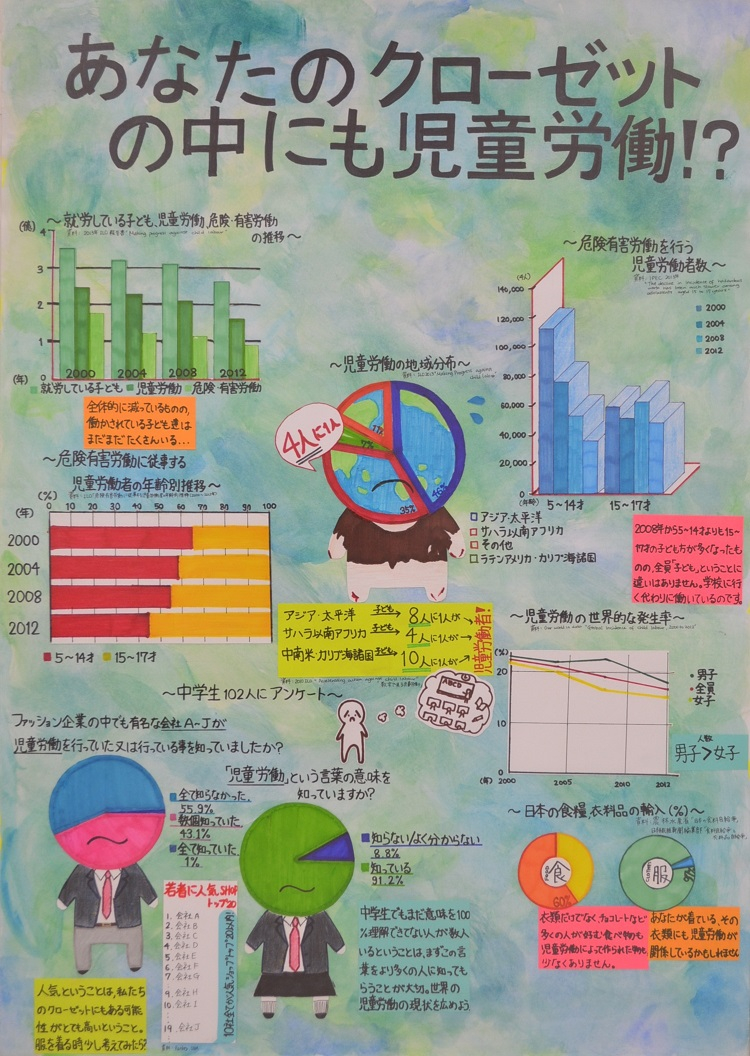 あなたのクローゼット
の中にも児童労働!?
～就労している子ども、児童労働、危険・有害労働
の推移～
(億)
4
3
2
1
0
(年)
2000
2004
2008
2012
就労している子ども
児童労働
危険・有害労働
全体的に減っているものの、
働かされている子ども達は
まだまだたくさんいる...
～危険有害労働に従事する
児童労働者の年齢別推移～
(年)
(%)
0
10
20
30
40
50
60
70
80
90
100
2000
2004
2008
2012
5～14才
15～17才
～児童労働の地域分布～
4人に1人
11%
7%
35%
46%
アジア・太平洋
サハラ以南アフリカ
その他
ラテンアメリカ・カリブ海諸国
アジア・太平洋 子ども→ 8人に1人が→
サハラ以南アフリカ 子ども→ 4人に1人が→
中南米・カリブ海諸国 子ども→ 10人に1人が→
児童労働者!
～危険有害労働を行う
児童労働者数～
(千人)
140,000
120,000
100,000
80,000
60,000
40,000
20,000
0
(年齢)
5～14才
15～17才
2000
2004
2008
2012
2008年から5～14才よりも15～
17才の子ども方が多くなったも
のの、全員「子ども」ということに
違いはありません。学校に行
く代わりに働いているのです。
～児童労働の世界的な発生率～
(%)
20
10
0
(年)
2000
2005
2010
2012
男子
全員
女子
人数
男子>女子
～中学生102人にアンケート～
ファッション企業の中でも有名な会社A～Jが
児童労働を行っていた又は行っている事を知っていましたか?
全て知らなかった
55.9%
数個知っていた
43.1%
全て知っていた
1%
ABCD
「児童労働」という言葉の意味を
知っていますか?
知らない/よく分からない
8.8%
知っている
91.2%
若者に人気、SHOP
トップ20
1. 会社A
2. 会社B
3. 会社C
4. 会社D
5. 会社E
6. 会社F
7. 会社G
9. 会社H
10. 会社I
19. 会社J
人気ということは、私たち
のクローゼットにもある可能
性がとても高いということ。
服を着る時少し考えてみたら?
中学生でもまだ意味を100
%理解できてない人が数人
いるということは、まずこの言
葉をより多くの人に知っても
らうことが大切。世界の
児童労働の現状を広めよう
～日本の食糧、衣料品の輸入(%)～
食
60%
服
97%
衣類だけでなく、チョコレートなど
多くの人が好む食べ物も
児童労働によって作られた物も
少なくありません。
あなたが着ている、その
衣類にも児童労働が
関係しているかもしれません